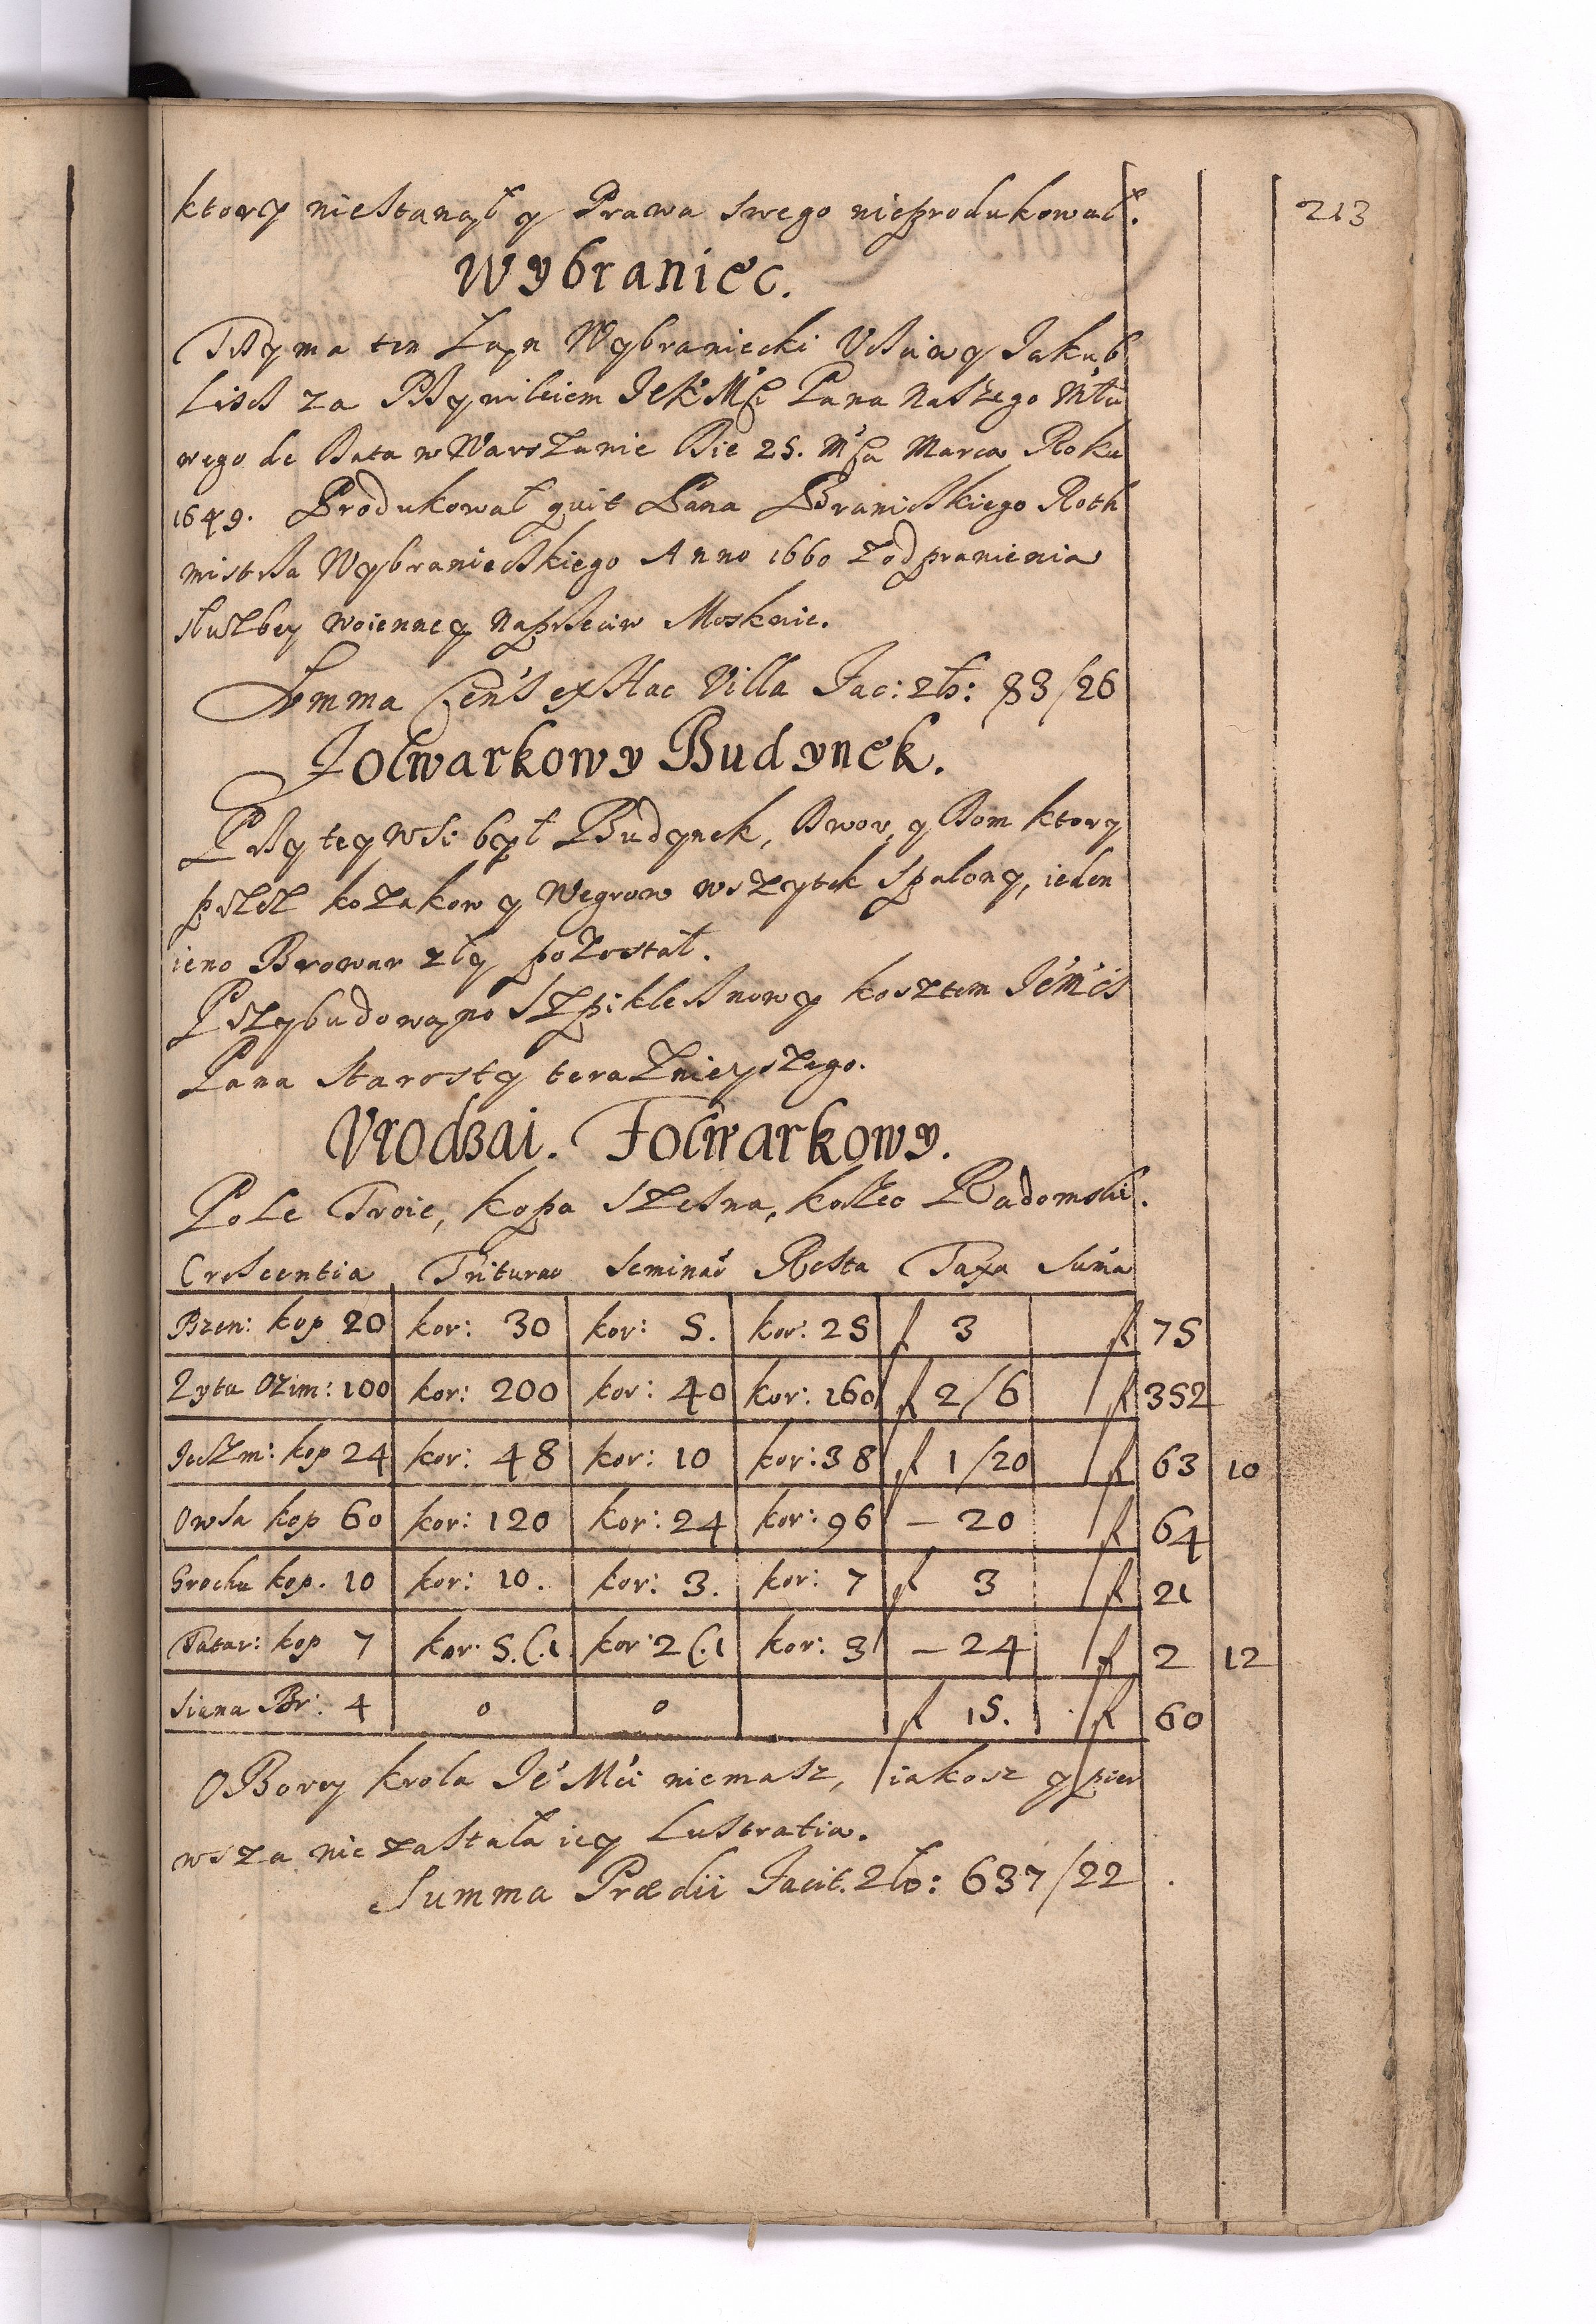 213
ktory niestanął y Prawa swego nieprodukował.
Wybraniec.
Trzyma ten Łan Wybraniecki Vcciwy Jakub
Lisch za Przywileiem JeK Mści Pana Naszego Miłci
wego de Data w Warszawie Die 25. Mca Marca Roku
1649. Produkował quit Pana Branickiego Roth
mistrza Wybranieckiego Anno 1660 z odprawienia
służbey woienney naprzeciw Moskwie.
Summa Cens ex Hac Villa Fac: zło: 83/26
Folwarkowy Budynek.
Przy tey wsi był Budynek, Dwor, y Dom ktory
przez kozakow y Węgrow wszytek spalony, ieden
ieno Browar zły pozostał.
Przybudowano Szpiklerz nowy kosztem Jemci
Pana Starosty teraznieyszego.
Vrodzai. Folwarkowy.
Pole Troie, kopa szesna, korzec Radomski.
Crescentia Triturao Seminao Resta Taxa Suma
Przen: kop 20 kor: 30 kor: 5. kor: 25 f 3 f 75
Zyta Ozim: 100 kor: 200 kor: 40 kor: 160 f 2/6 f 352
Jeczm: kop 24 kor: 48 kor: 10 kor: 38 f 1/20 f 63 10
Owsa kop 60 kor: 120 kor: 24 kor: 96 – 20 f 64
Grochu kop. 10 kor: 10. kor: 3. kor: 7 f 3 f 21
Tatar: kop 7 kor: 5.C.1 kor: 2 C.1 kor: 3 – 24 f 2 12
Siana Br: 4 0 0 f 15. f 60
Obory krola Je Mci niemasz, iakosz y pier
wsza nie zastała iey Lustratia.
Summa Prædii Facit. zło: 637/22.